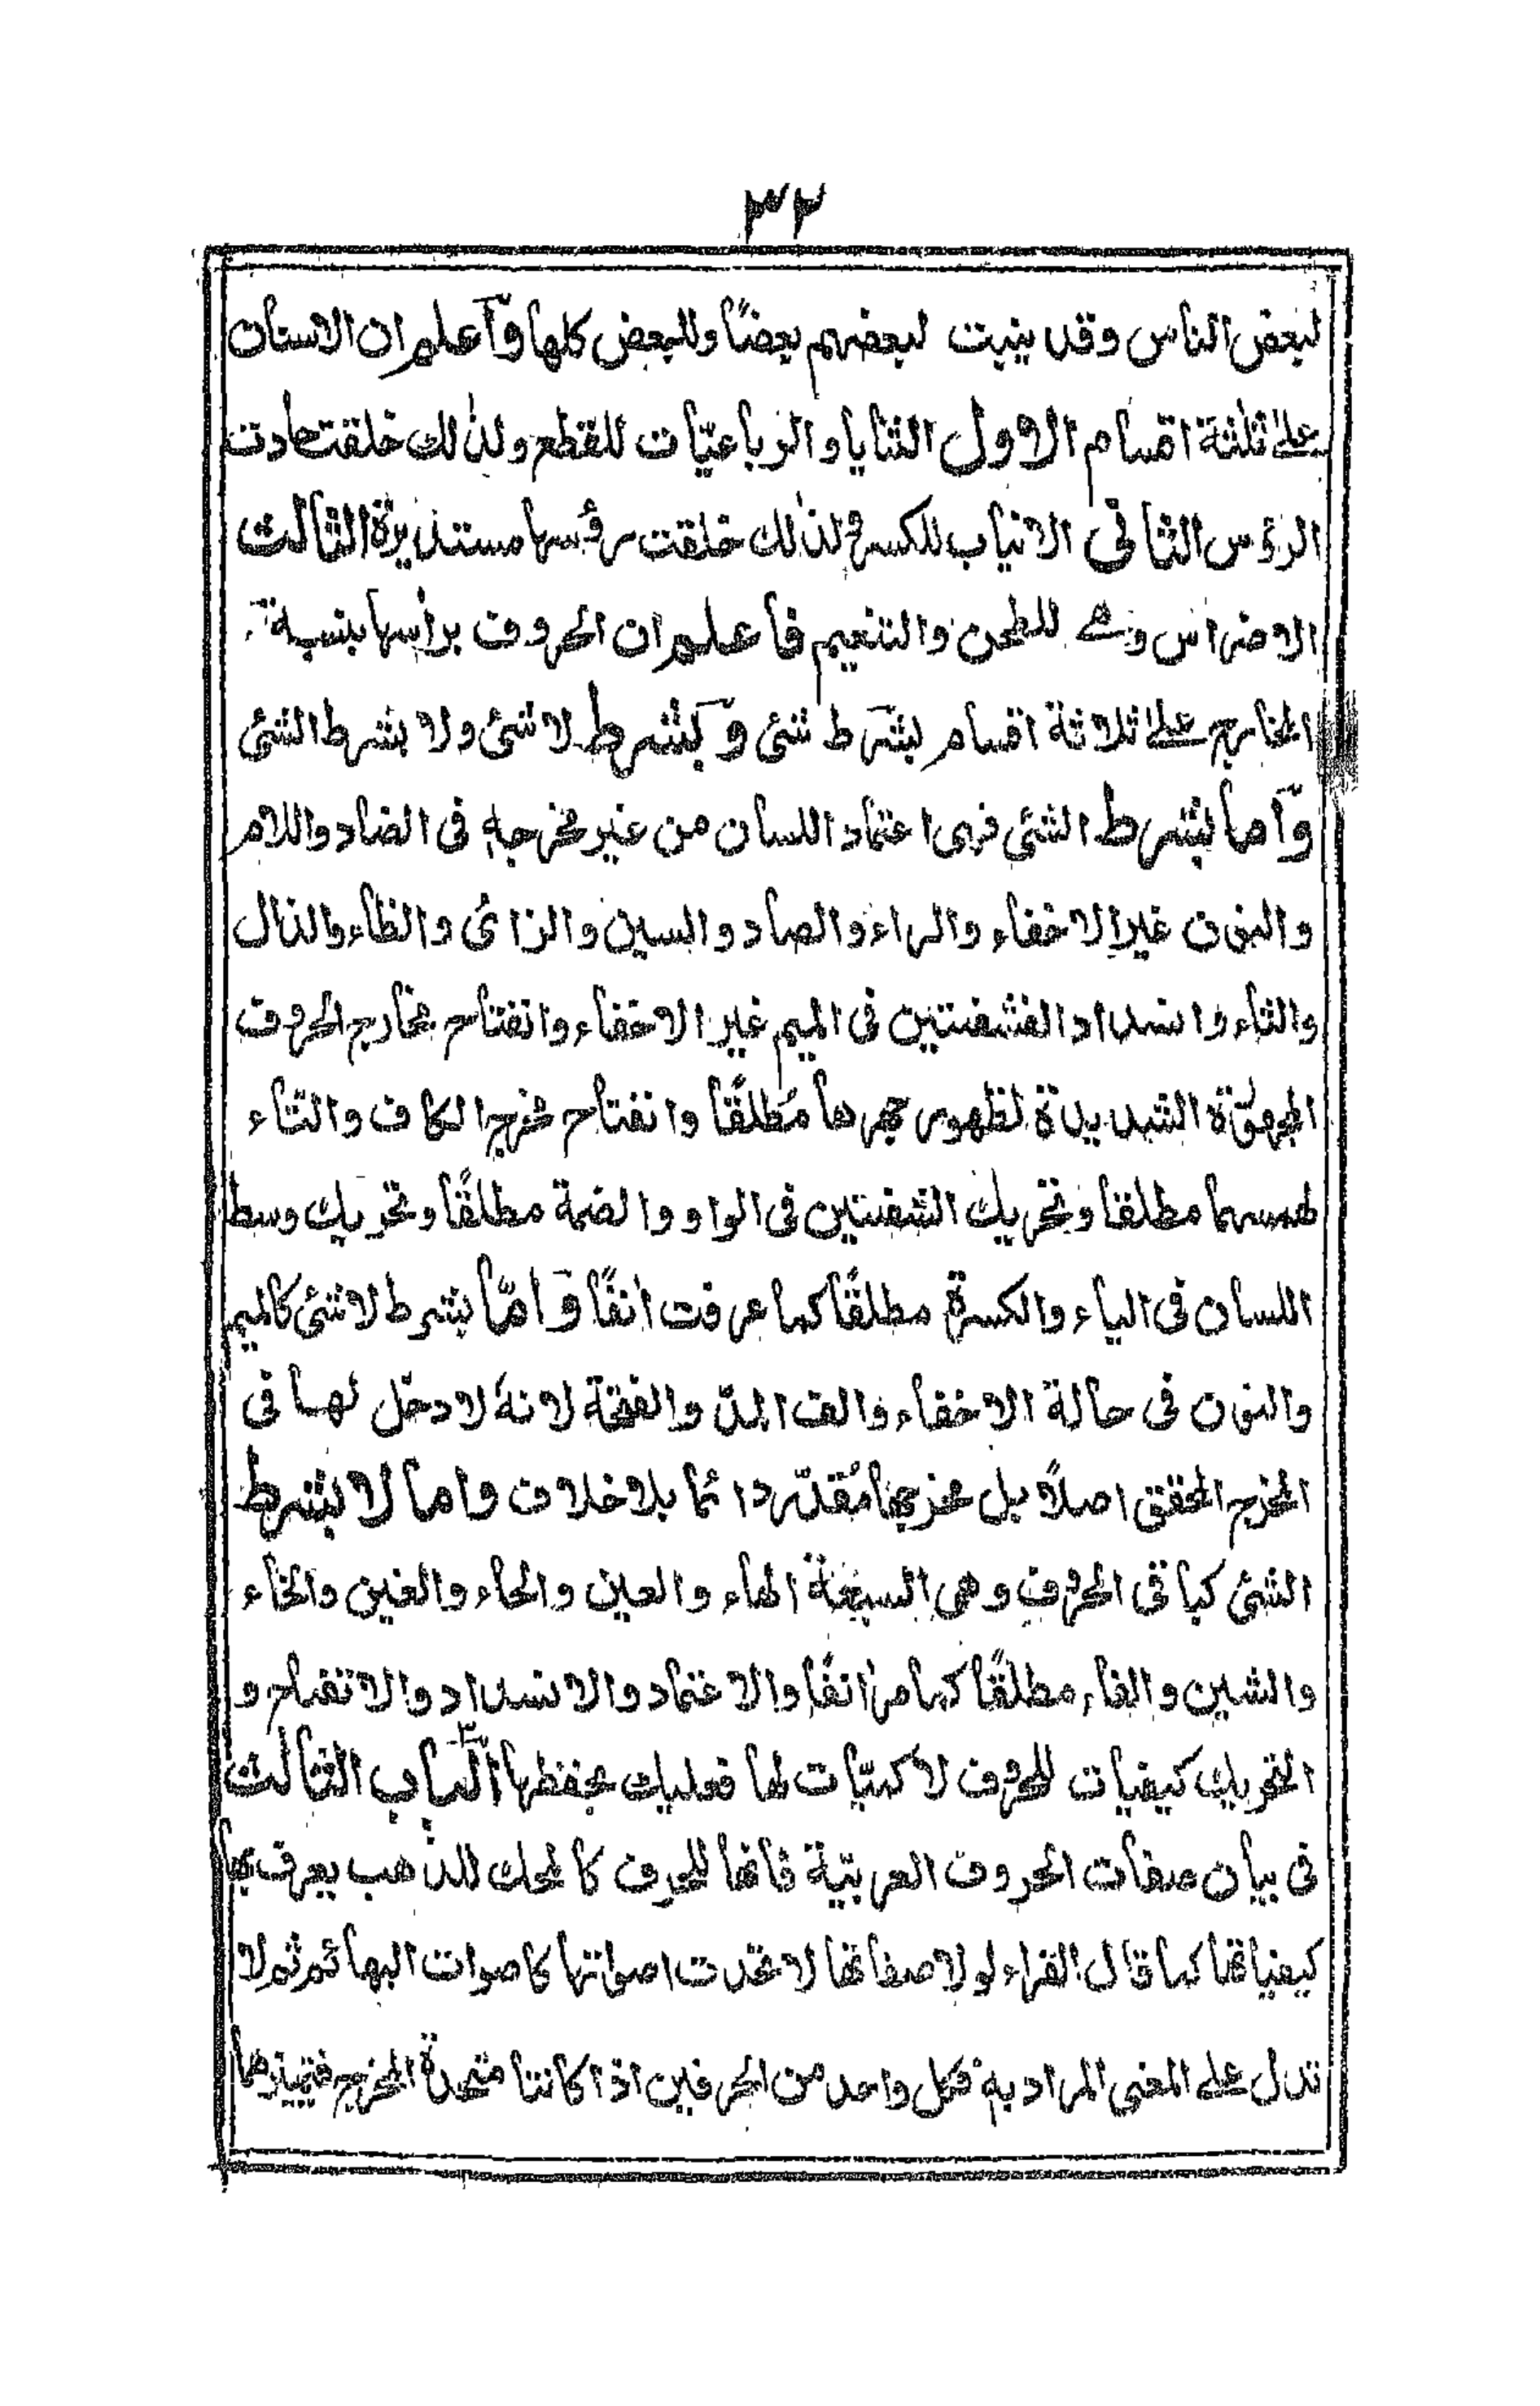 ٣٢
لبعض الناس وقد ينبت لبعضهم بعضًا وللبعض كلها وآعلم ان الاسنان
على ثلثة اقسام الاول الثنايا والرباعيّات للقطع ولذلك خلقت حادت
الرؤس الثانى الانياب للكسر ولذلك خلقت رؤسها مستديرة الثالث
الاضراس وهى للطحن والتنعيم فاعلم ان الحروف برأسها بنسبة
المخارج على ثلاثة اقسام بشرط شئ وبشرط لا شئ ولا بشرط الشئ
وآما بشرط الشئ فهى اعتماد اللسان من غير مخرجه فى الضاد واللام
والنون غير الاخفاء والراء والصاد والسين والزائ والظاء والذال
والثاء وانسداد الشفتين فى الميم غير الاخفاء وانفتاح مخارج الحروف
المجهورة الشديدة لظهور جهرها مُطلقًا وانفتاح مخرج الكاف والتاء
لهمسهما مطلقا وتحريك الشفتين فى الواو والضمة مطلقًا وتحريك وسط
اللسان فى الياء والكسرة مطلقًا كما عرفت انفًا وَامّا بشرط لا شئ كالميم
والنون فى حالة الاخفاء والف المدّ والفتحة لانهٗ لا دخل لهما فى
المخرج المحقق اصلًا بل مخرجها مُقدّر دائما بلا خلاف واما لا بشرط
الشئ كباقى الحروف وهى السبعة الهاء والعين والحاء والغين والخاء
والشين والفاء مطلقًا كما مر انفًا والاعتماد والانسداد والانفتاح و
التحريك كيفيات للحروف لا كميّات لها فعليك بحفظها الّباب الثالث
فى بيان صفات الحروف العربيّة فانها للحرف كالمحك للذهب يعرف بها
كيفياتها كما قال القراء لولا صفاتها لاتحدت اصواتها كاصوات البهائم ثم لا
تدل على المعنى المراد به فكل واحد من الحرفين اذا كانتا متحدة المخرج فتميزهما